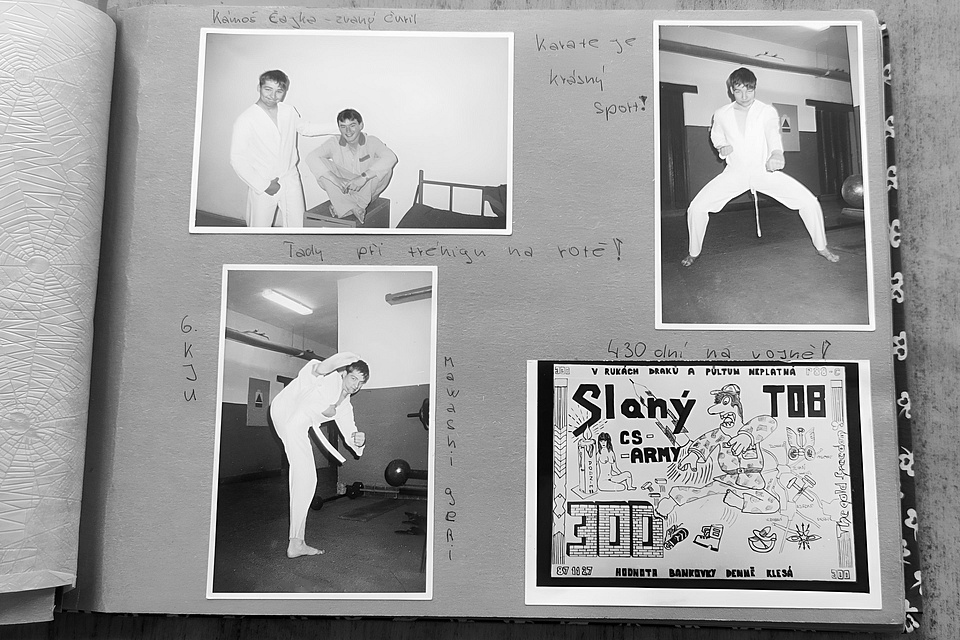 Kámoš Čajka - zvaný Čuril
Karate je
krásný
sport!
Tady při trénigu na rotě!
6.
KJU
mawashi geri
430 dní na vojně!
V RUKÁCH DRAKŮ A PŮLTUM NEPLATNÁ
300
Slaný
TOB
CS-
-ARMY
300
The gold freedom!
87 11 27
HODNOTA BANKOVKY DENNĚ KLESÁ
300